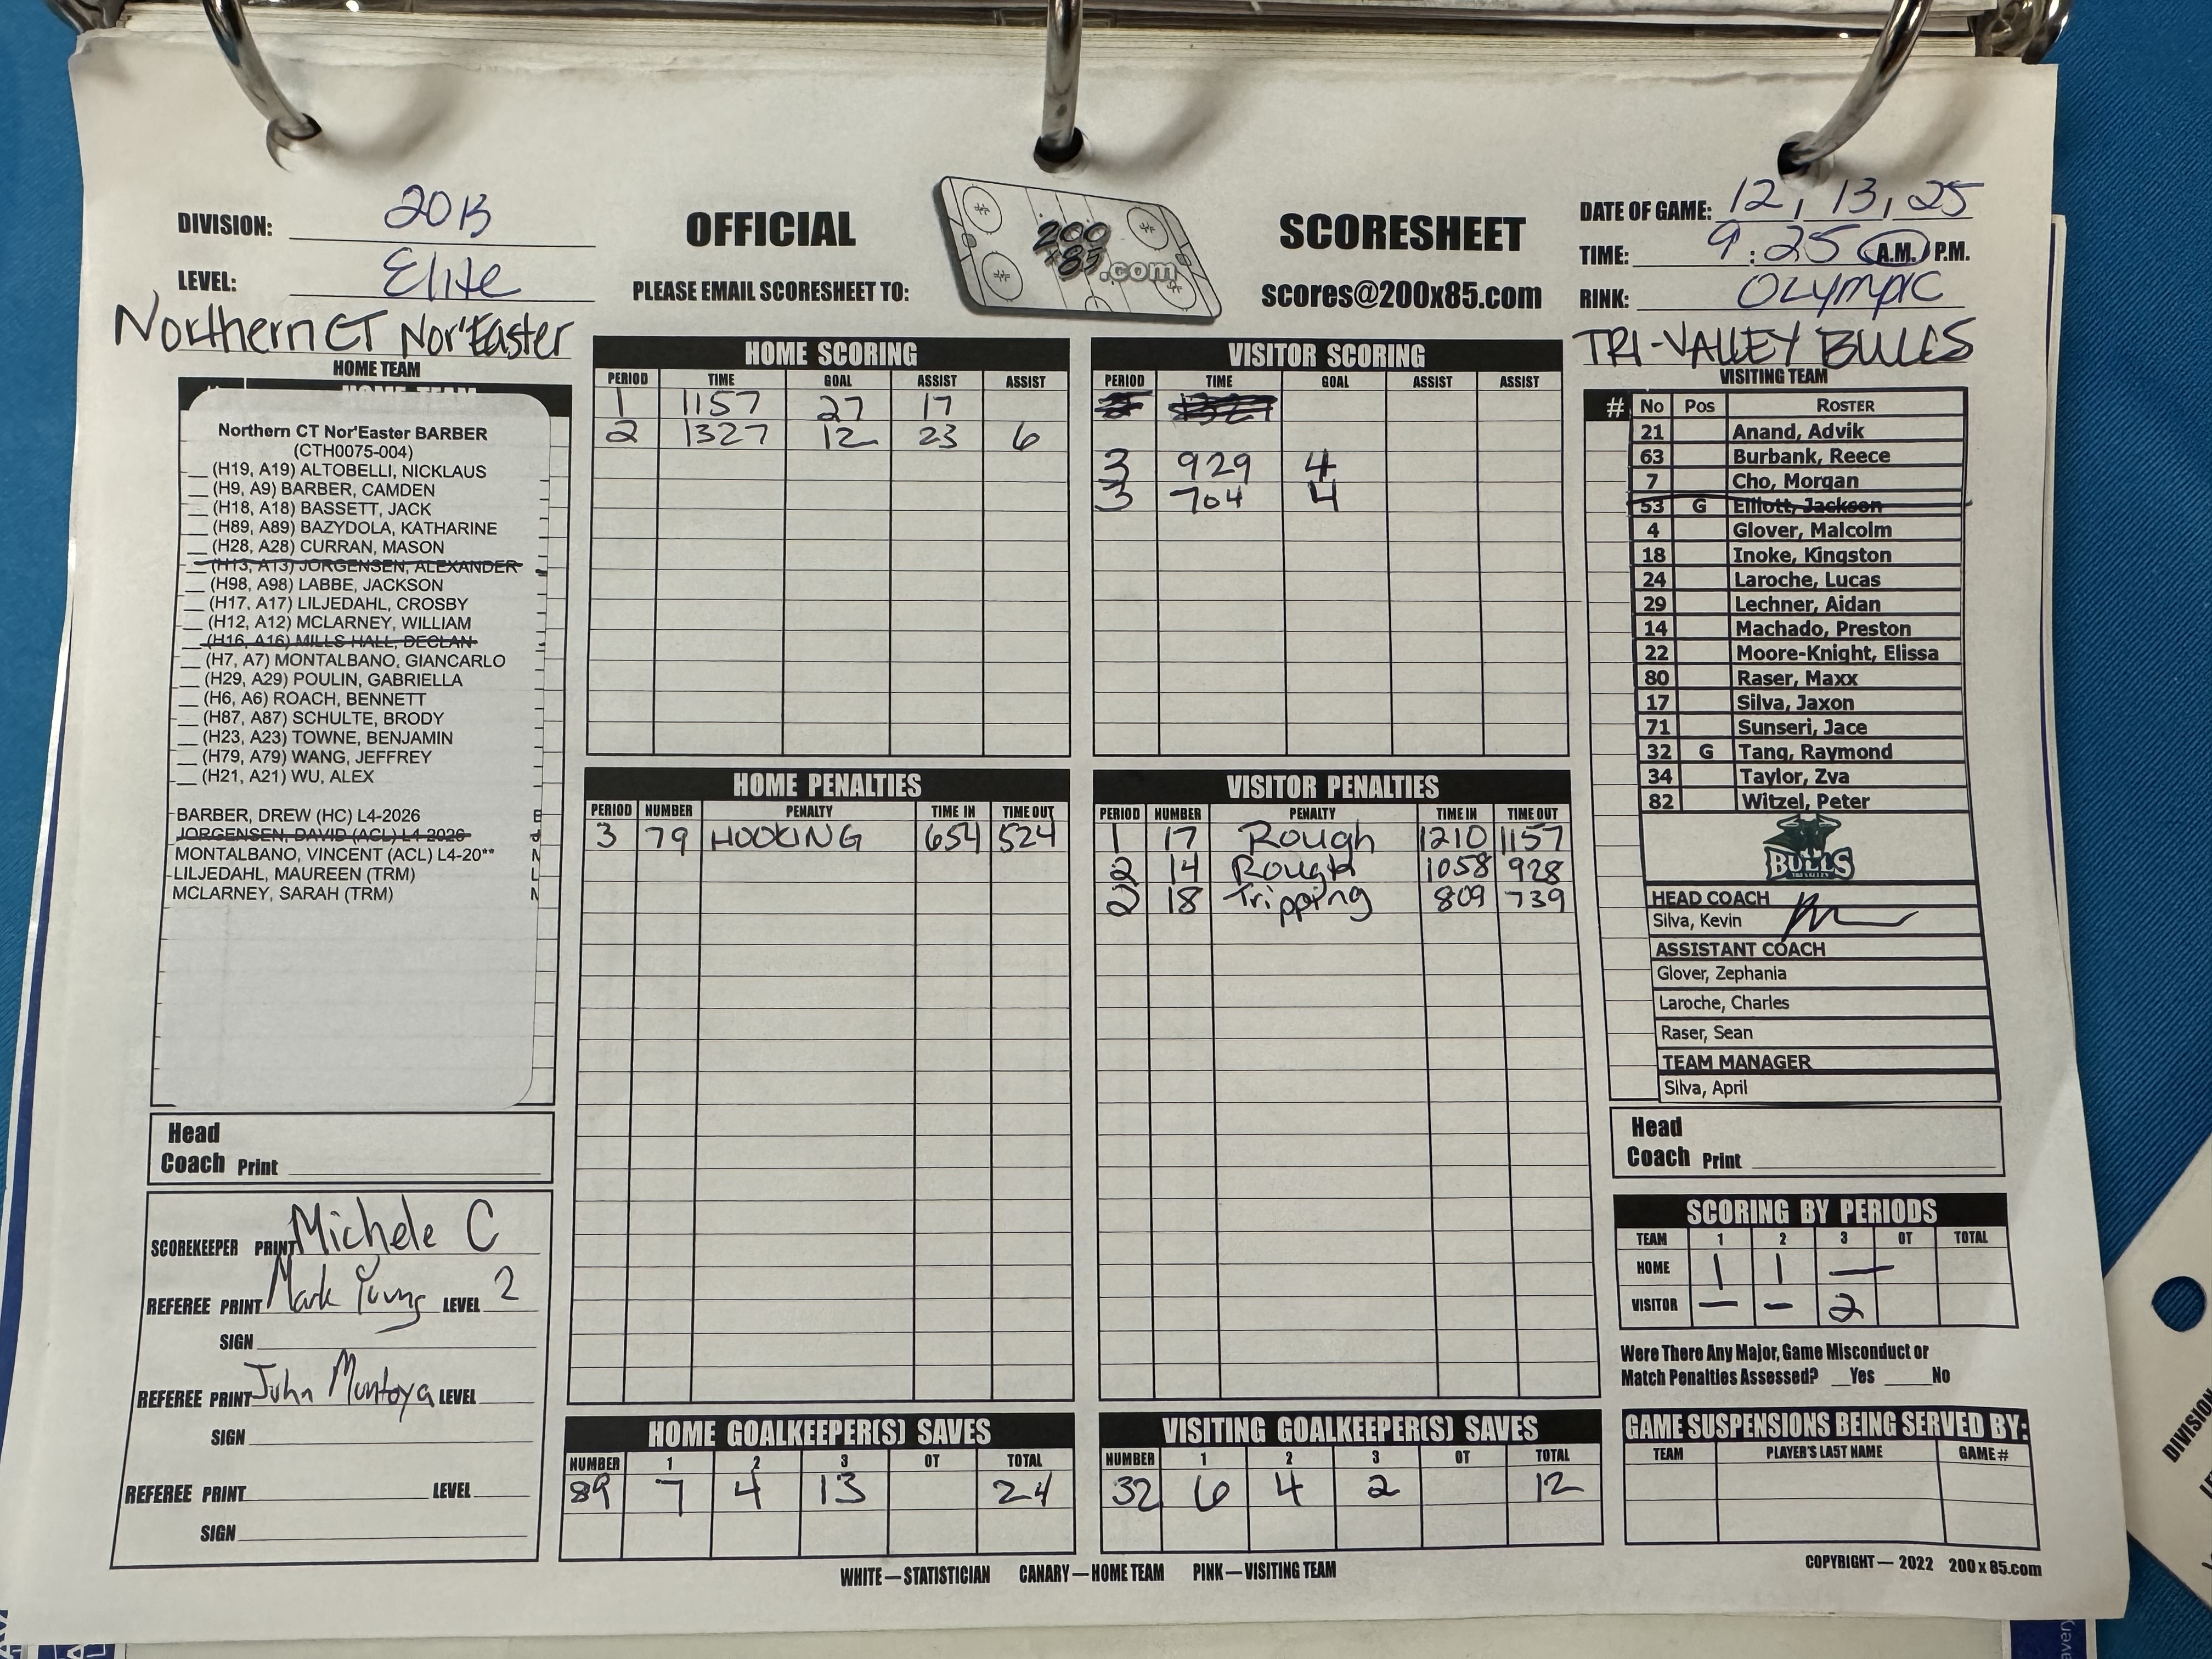 DIVISION: 2013
LEVEL: Elite
OFFICIAL
PLEASE EMAIL SCORESHEET TO:
200 x 85 .com
SCORESHEET
scores@200x85.com
DATE OF GAME: 12, 13, 25
TIME: 9:25 A.M. / P.M.
RINK: OLYMPIC
Northern CT Nor'Easter
HOME TEAM
HOME TEAM
Northern CT Nor'Easter BARBER
(CTH0075-004)
__ (H19, A19) ALTOBELLI, NICKLAUS
__ (H9, A9) BARBER, CAMDEN
__ (H18, A18) BASSETT, JACK
__ (H89, A89) BAZYDOLA, KATHARINE
__ (H28, A28) CURRAN, MASON
__ (H13, A13) JORGENSEN, ALEXANDER
__ (H98, A98) LABBE, JACKSON
__ (H17, A17) LILJEDAHL, CROSBY
__ (H12, A12) MCLARNEY, WILLIAM
__ (H16, A16) MILLS HALL, DECLAN
__ (H7, A7) MONTALBANO, GIANCARLO
__ (H29, A29) POULIN, GABRIELLA
__ (H6, A6) ROACH, BENNETT
__ (H87, A87) SCHULTE, BRODY
__ (H23, A23) TOWNE, BENJAMIN
__ (H79, A79) WANG, JEFFREY
__ (H21, A21) WU, ALEX
BARBER, DREW (HC) L4-2026
JORGENSEN, DAVID (ACL) L4-2026
MONTALBANO, VINCENT (ACL) L4-20**
LILJEDAHL, MAUREEN (TRM)
MCLARNEY, SARAH (TRM)
Head
Coach Print
SCOREKEEPER PRINT Michele C
REFEREE PRINT Mark Young LEVEL 2
SIGN
REFEREE PRINT John Montoya LEVEL
SIGN
REFEREE PRINT LEVEL
SIGN
HOME SCORING
PERIOD TIME GOAL ASSIST ASSIST
1 1157 27 17
2 1327 12 23 6
HOME PENALTIES
PERIOD NUMBER PENALTY TIME IN TIME OUT
3 79 HOOKING 654 524
HOME GOALKEEPER(S) SAVES
NUMBER 1 2 3 OT TOTAL
89 7 4 13 24
VISITOR SCORING
PERIOD TIME GOAL ASSIST ASSIST
3 929 4
3 704 4
VISITOR PENALTIES
PERIOD NUMBER PENALTY TIME IN TIME OUT
1 17 Rough 1210 1157
2 14 Rough 1058 928
2 18 Tripping 809 739
VISITING GOALKEEPER(S) SAVES
NUMBER 1 2 3 OT TOTAL
32 6 4 2 12
TRI-VALLEY BULLS
VISITING TEAM
# No Pos ROSTER
21 Anand, Advik
63 Burbank, Reece
7 Cho, Morgan
53 G Elliott, Jackson
4 Glover, Malcolm
18 Inoke, Kingston
24 Laroche, Lucas
29 Lechner, Aidan
14 Machado, Preston
22 Moore-Knight, Elissa
80 Raser, Maxx
17 Silva, Jaxon
71 Sunseri, Jace
32 G Tang, Raymond
34 Taylor, Zva
82 Witzel, Peter
BULLS
TRI VALLEY
HEAD COACH
Silva, Kevin
ASSISTANT COACH
Glover, Zephania
Laroche, Charles
Raser, Sean
TEAM MANAGER
Silva, April
Head
Coach Print
SCORING BY PERIODS
TEAM 1 2 3 OT TOTAL
HOME 1 1 —
VISITOR — — 2
Were There Any Major, Game Misconduct or
Match Penalties Assessed? __Yes ____No
GAME SUSPENSIONS BEING SERVED BY:
TEAM PLAYER'S LAST NAME GAME #
WHITE — STATISTICIAN CANARY — HOME TEAM PINK — VISITING TEAM
COPYRIGHT — 2022 200 x 85.com
DIVISION